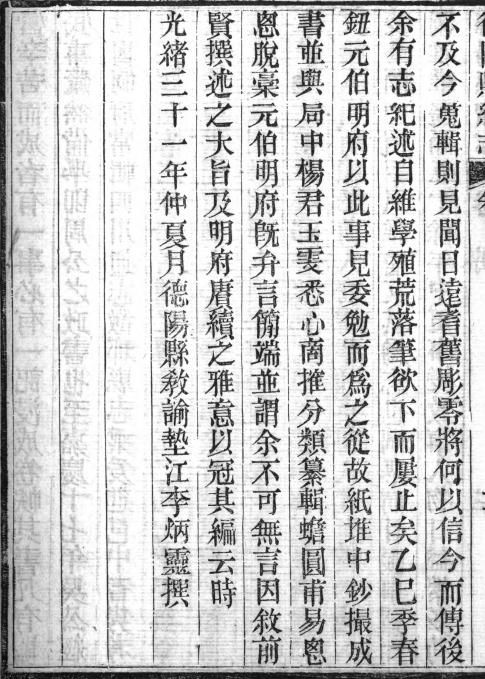 不及今蒐輯則見聞日遠耆舊彫零將何以信今而傳後
余有志紀述自維學殖荒落筆欲下而屢止矣乙巳季春
鈕元伯明府以此事見委勉而爲之從故紙堆中鈔撮成
書並與局中楊君玉雯悉心商搉分類纂輯蟾圓甫易恖
恖脫稾元伯明府旣弁言簡端並謂余不可無言因敘前
賢撰述之大旨及明府賡續之雅意以冠其編云時
光緒三十一年仲夏月德陽縣教諭墊江李炳靈撰